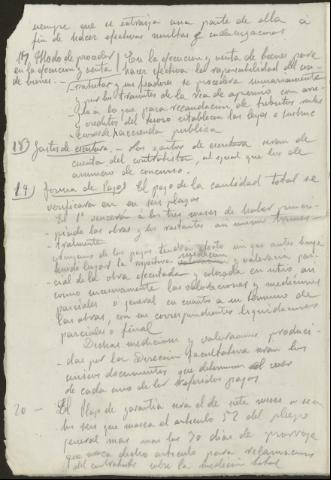 siempre que se extraiga una parte de ella a
fin de hacer efectivas multas e indemnizaciones
17) Modo de proceder En la ejecución y venta de bienes para
en la ejecución y venta hacer efectiva la responsabilidad del con-
de bienes. - tratista y su fiador se procederá sumariamente
y por los trámites de la vía de apremio con arre-
glo a lo que para recaudación de tributos
créditos del Tesoro establecen las leyes e
de hacienda pública
18) Gastos de escritura - Los gastos de escritura serán de
cuenta del contratista, al igual que los de
anuncio de concurso.
19) Forma de Pago El pago de la cantidad total se
verificará en seis plazos
El 1º vencerá a los tres meses de haber princi-
piado las obras y los restantes
Ninguno de los pagos tendrá efecto sin que antes haya
tenido lugar la respectiva medición y valoración par-
cial de la obra ejecutada y colocada en sitio, así
como sucesivamente las valoraciones y mediciones
parciales o general en cuanto a su término de
las obras, con sus correspondientes liquidaciones
parciales o final
Dichas mediciones y valoraciones produci-
das por la Dirección facultativa serán los
únicos documentos que determinen el valor
de cada uno de los pagos
20 - El Plazo de garantía será el de siete meses o sea
los seis que marca el artículo 52 del pliego
general mas los 30 días de prórroga
que marca dicho artículo para reclamaciones
del contratista sobre la medición total